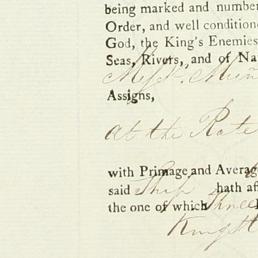 being marked and number
Order, and well condition
God, the King's Enemies
Seas, Rivers, and of Na
Messrs.
Assigns,
at the Rate
with Primage and Averag
said Ship hath af
the one of which Three
Knight